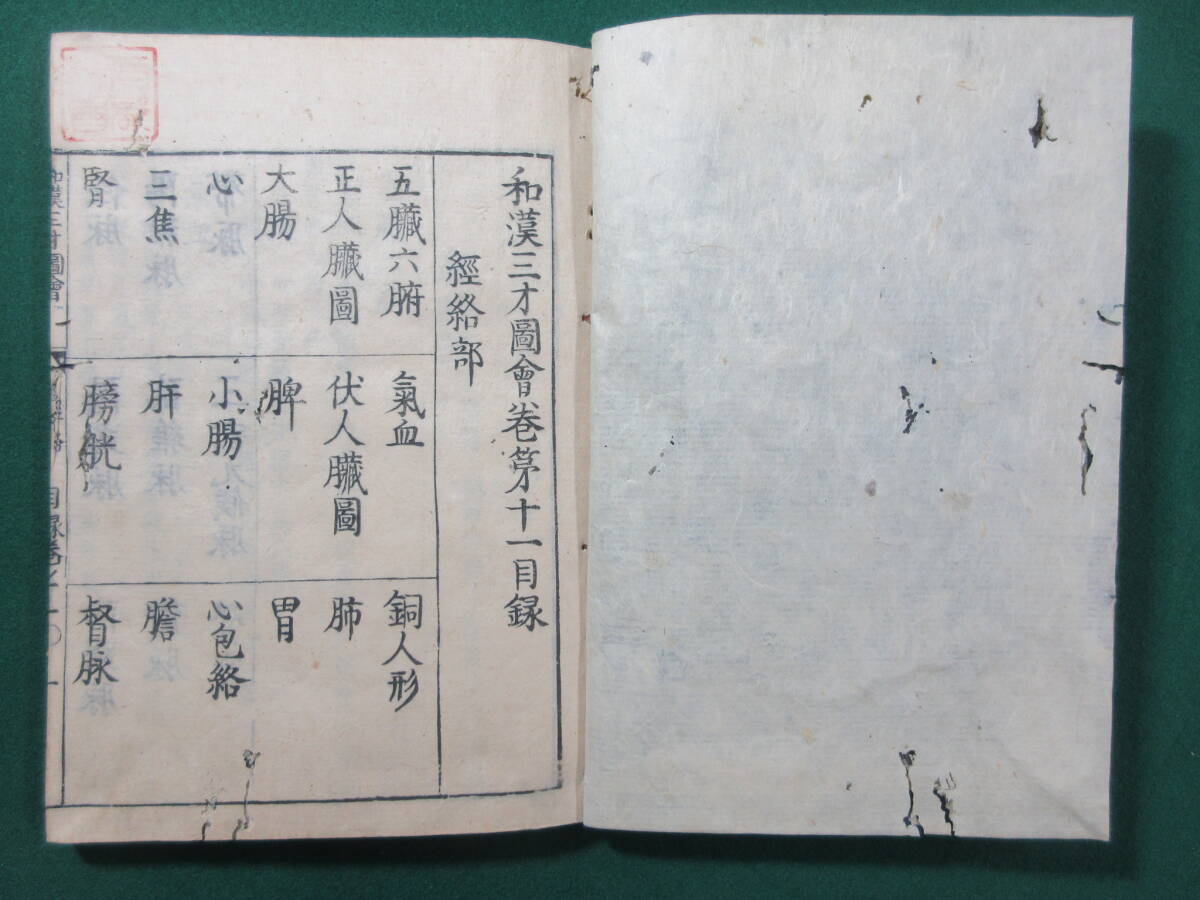 和漢三才圖會卷第十一目録
經絡部
五臟六腑
氣血
銅人形
正人臟圖
伏人臟圖
肺
大腸
脾
胃
心
小腸
心包絡
三焦
肝
膽
腎
膀胱
督脉
和漢三才圖會
目録